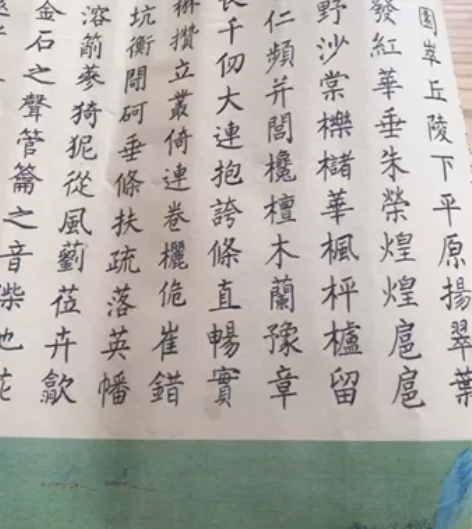 園丘陵下平原揚翠葉
發紅華垂朱榮煌煌扈扈
野沙棠櫟櫧華楓枰櫨留
仁頻并閭欃檀木蘭豫章
長千仞大連抱誇條直暢實
楙攢立叢倚連卷欐佹崔錯
坑衡閜砢垂條扶疏落英幡
溶箾蔘猗狔從風藰莅卉歙
金石之聲管籥之音柴